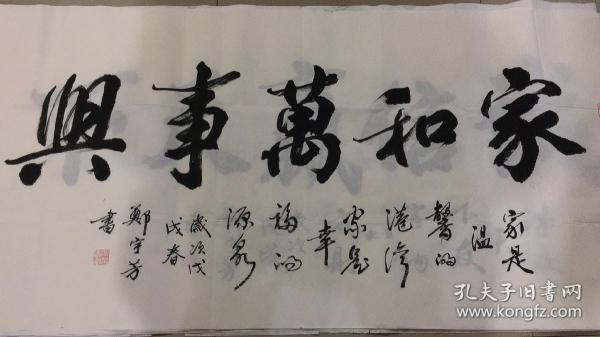 家和萬事興
家是
温
馨的
港湾
家是
幸
福的
源泉
歲次戊
戌春
鄭宇芳
書
孔夫子旧书网
www.kongfz.com